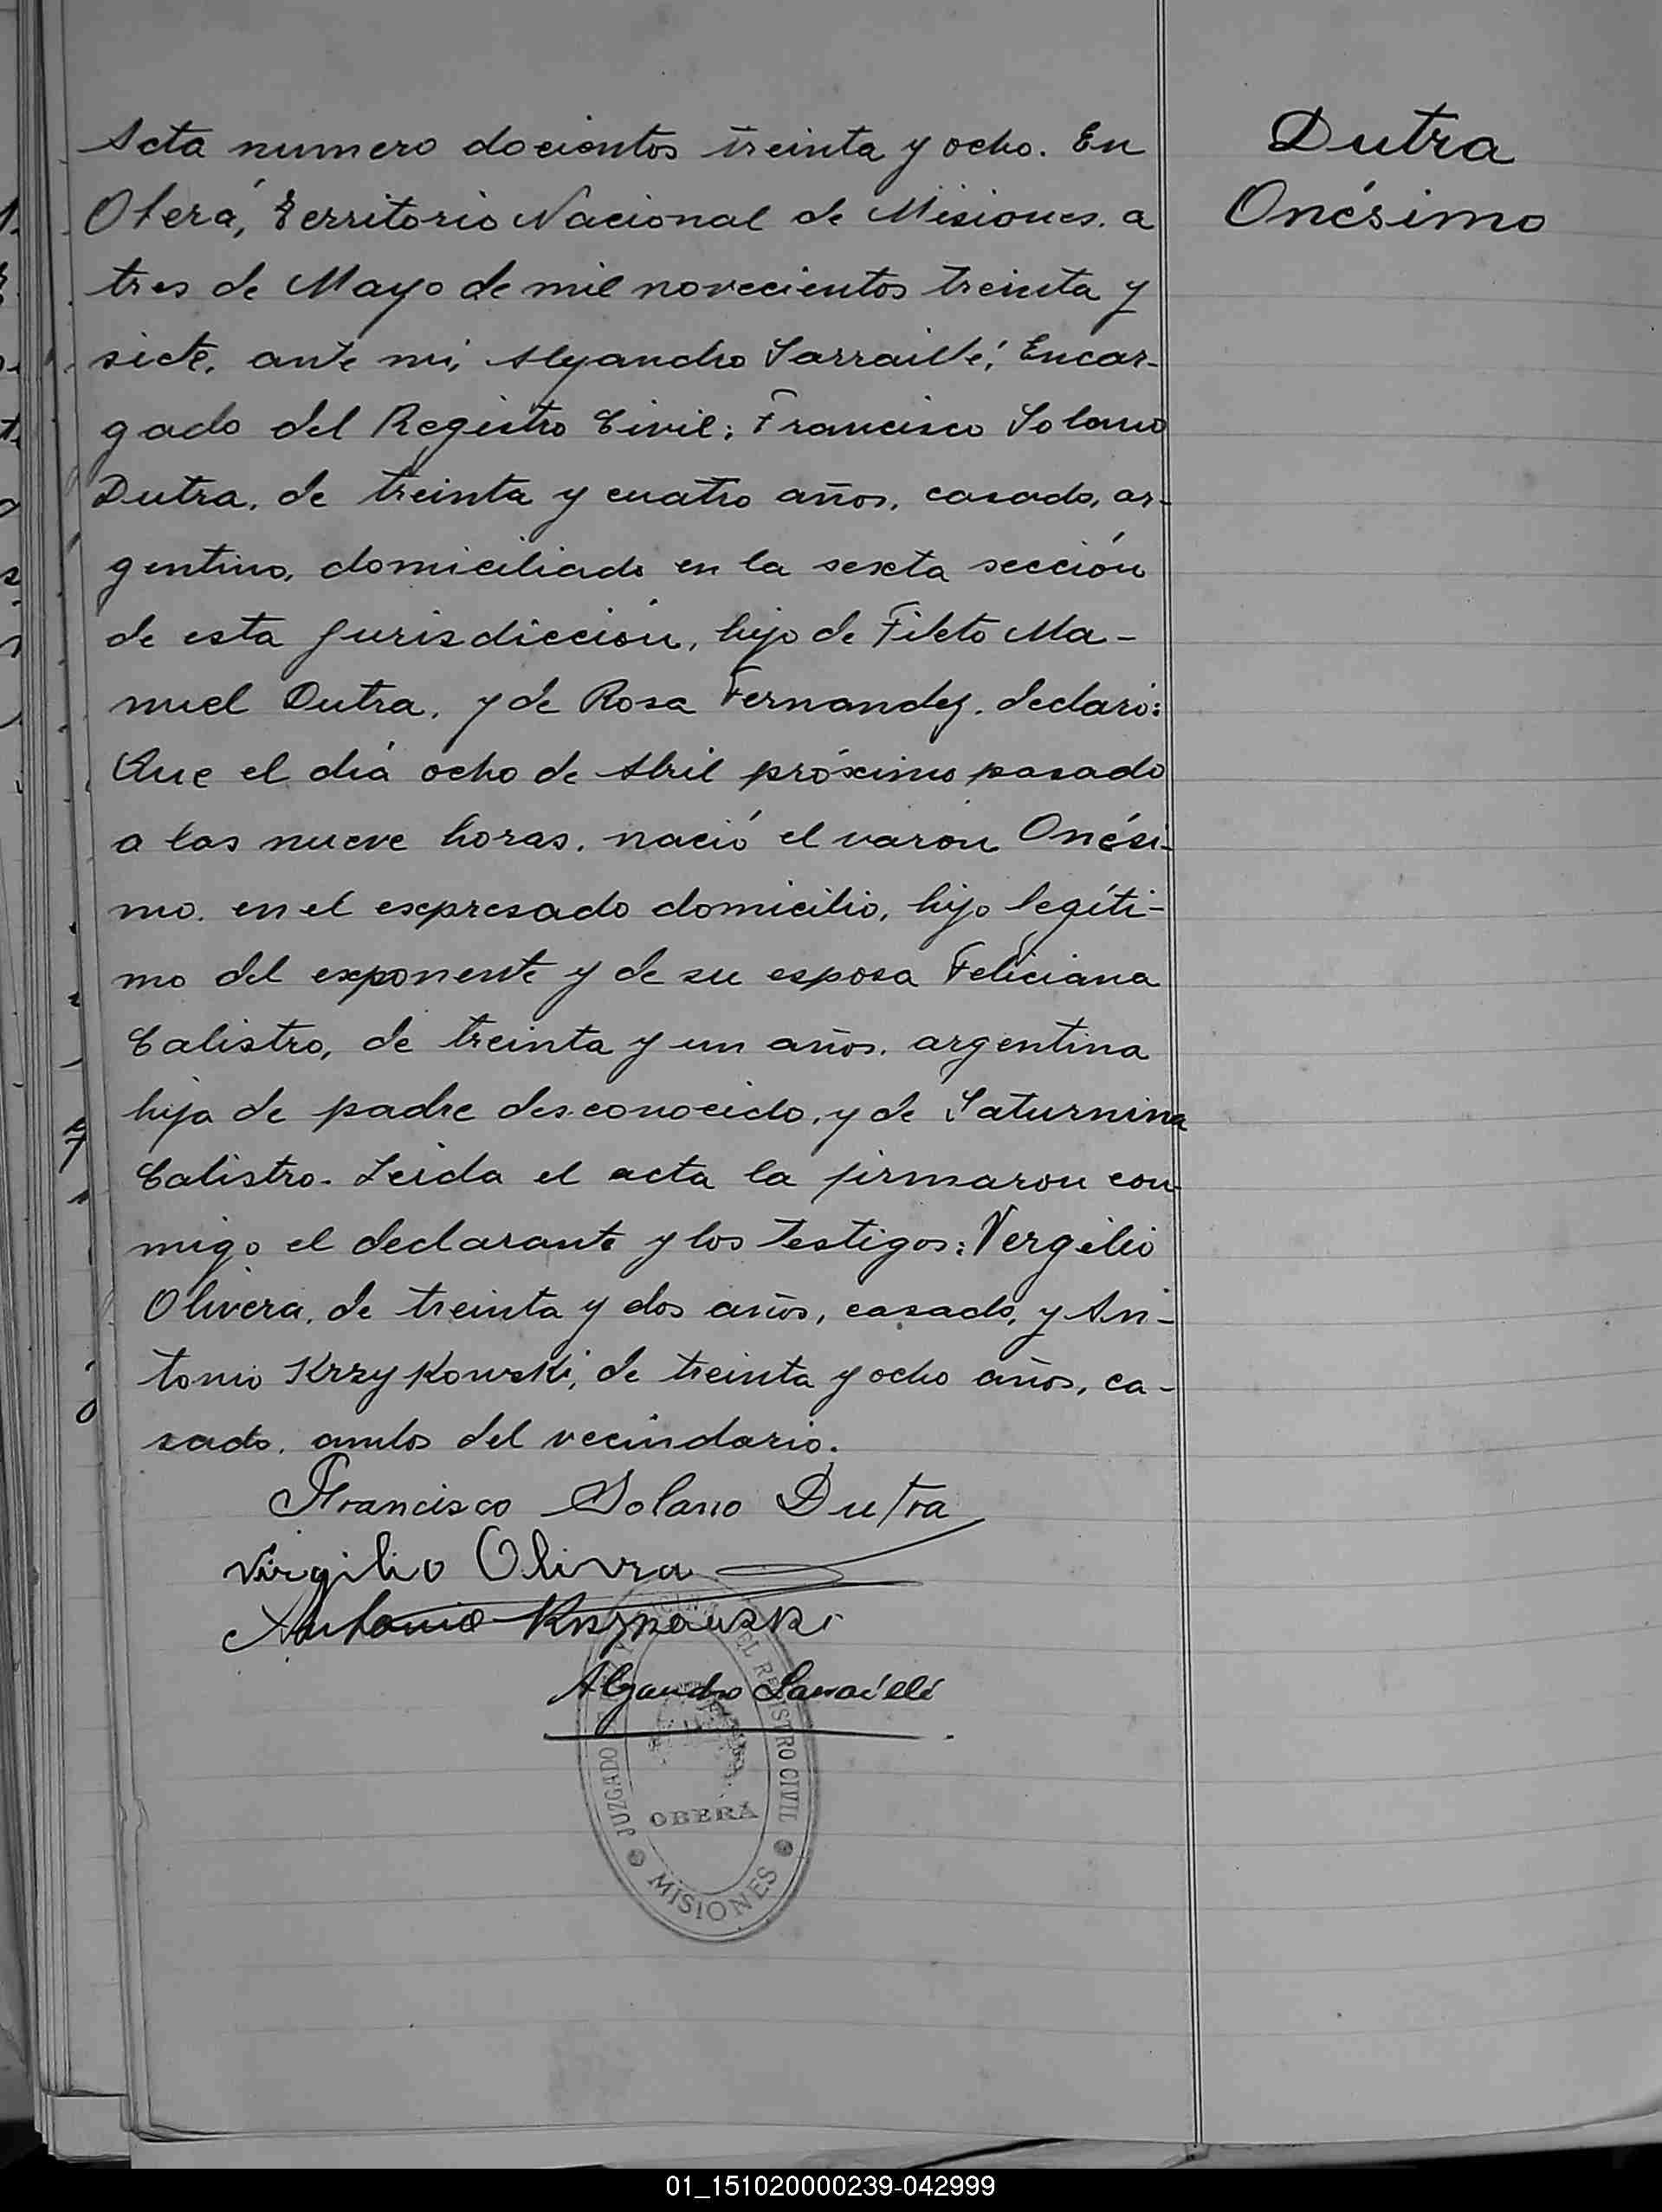 Dutra
Onésimo
Acta numero docientos treinta y ocho. En
Oberá, Territorio Nacional de Misiones. a
tres de Mayo de mil novecientos treinta y
siete, ante mi, Alejandro Sarraillé, Encar-
gado del Registro Civil; Francisco Solano
Dutra, de treinta y cuatro años, casado, ar-
gentino, domiciliado en la sexta sección
de esta jurisdicción, hijo de Fileto Ma-
nuel Dutra, y de Rosa Fernandez, declaró:
Que el día ocho de Abril próximo pasado
a las nueve horas, nació el varón Onési-
mo, en el expresado domicilio, hijo legíti-
mo del exponente y de su esposa Feliciana
Calistro, de treinta y un años, argentina
hija de padre desconocido, y de Saturnina
Calistro. Leida el acta la firmaron con-
migo el declarante y los testigos: Vergilio
Olivera, de treinta y dos años, casado, y An-
tonio Krzykowski, de treinta y ocho años, ca-
sado, ambos del vecindario.
Francisco Solano Dutra
Virgilio Olivra
Antonio
Alejandro Sarraillé
JUZGADO DEL REGISTRO CIVIL
OBERÁ
MISIONES
01_151020000239-042999